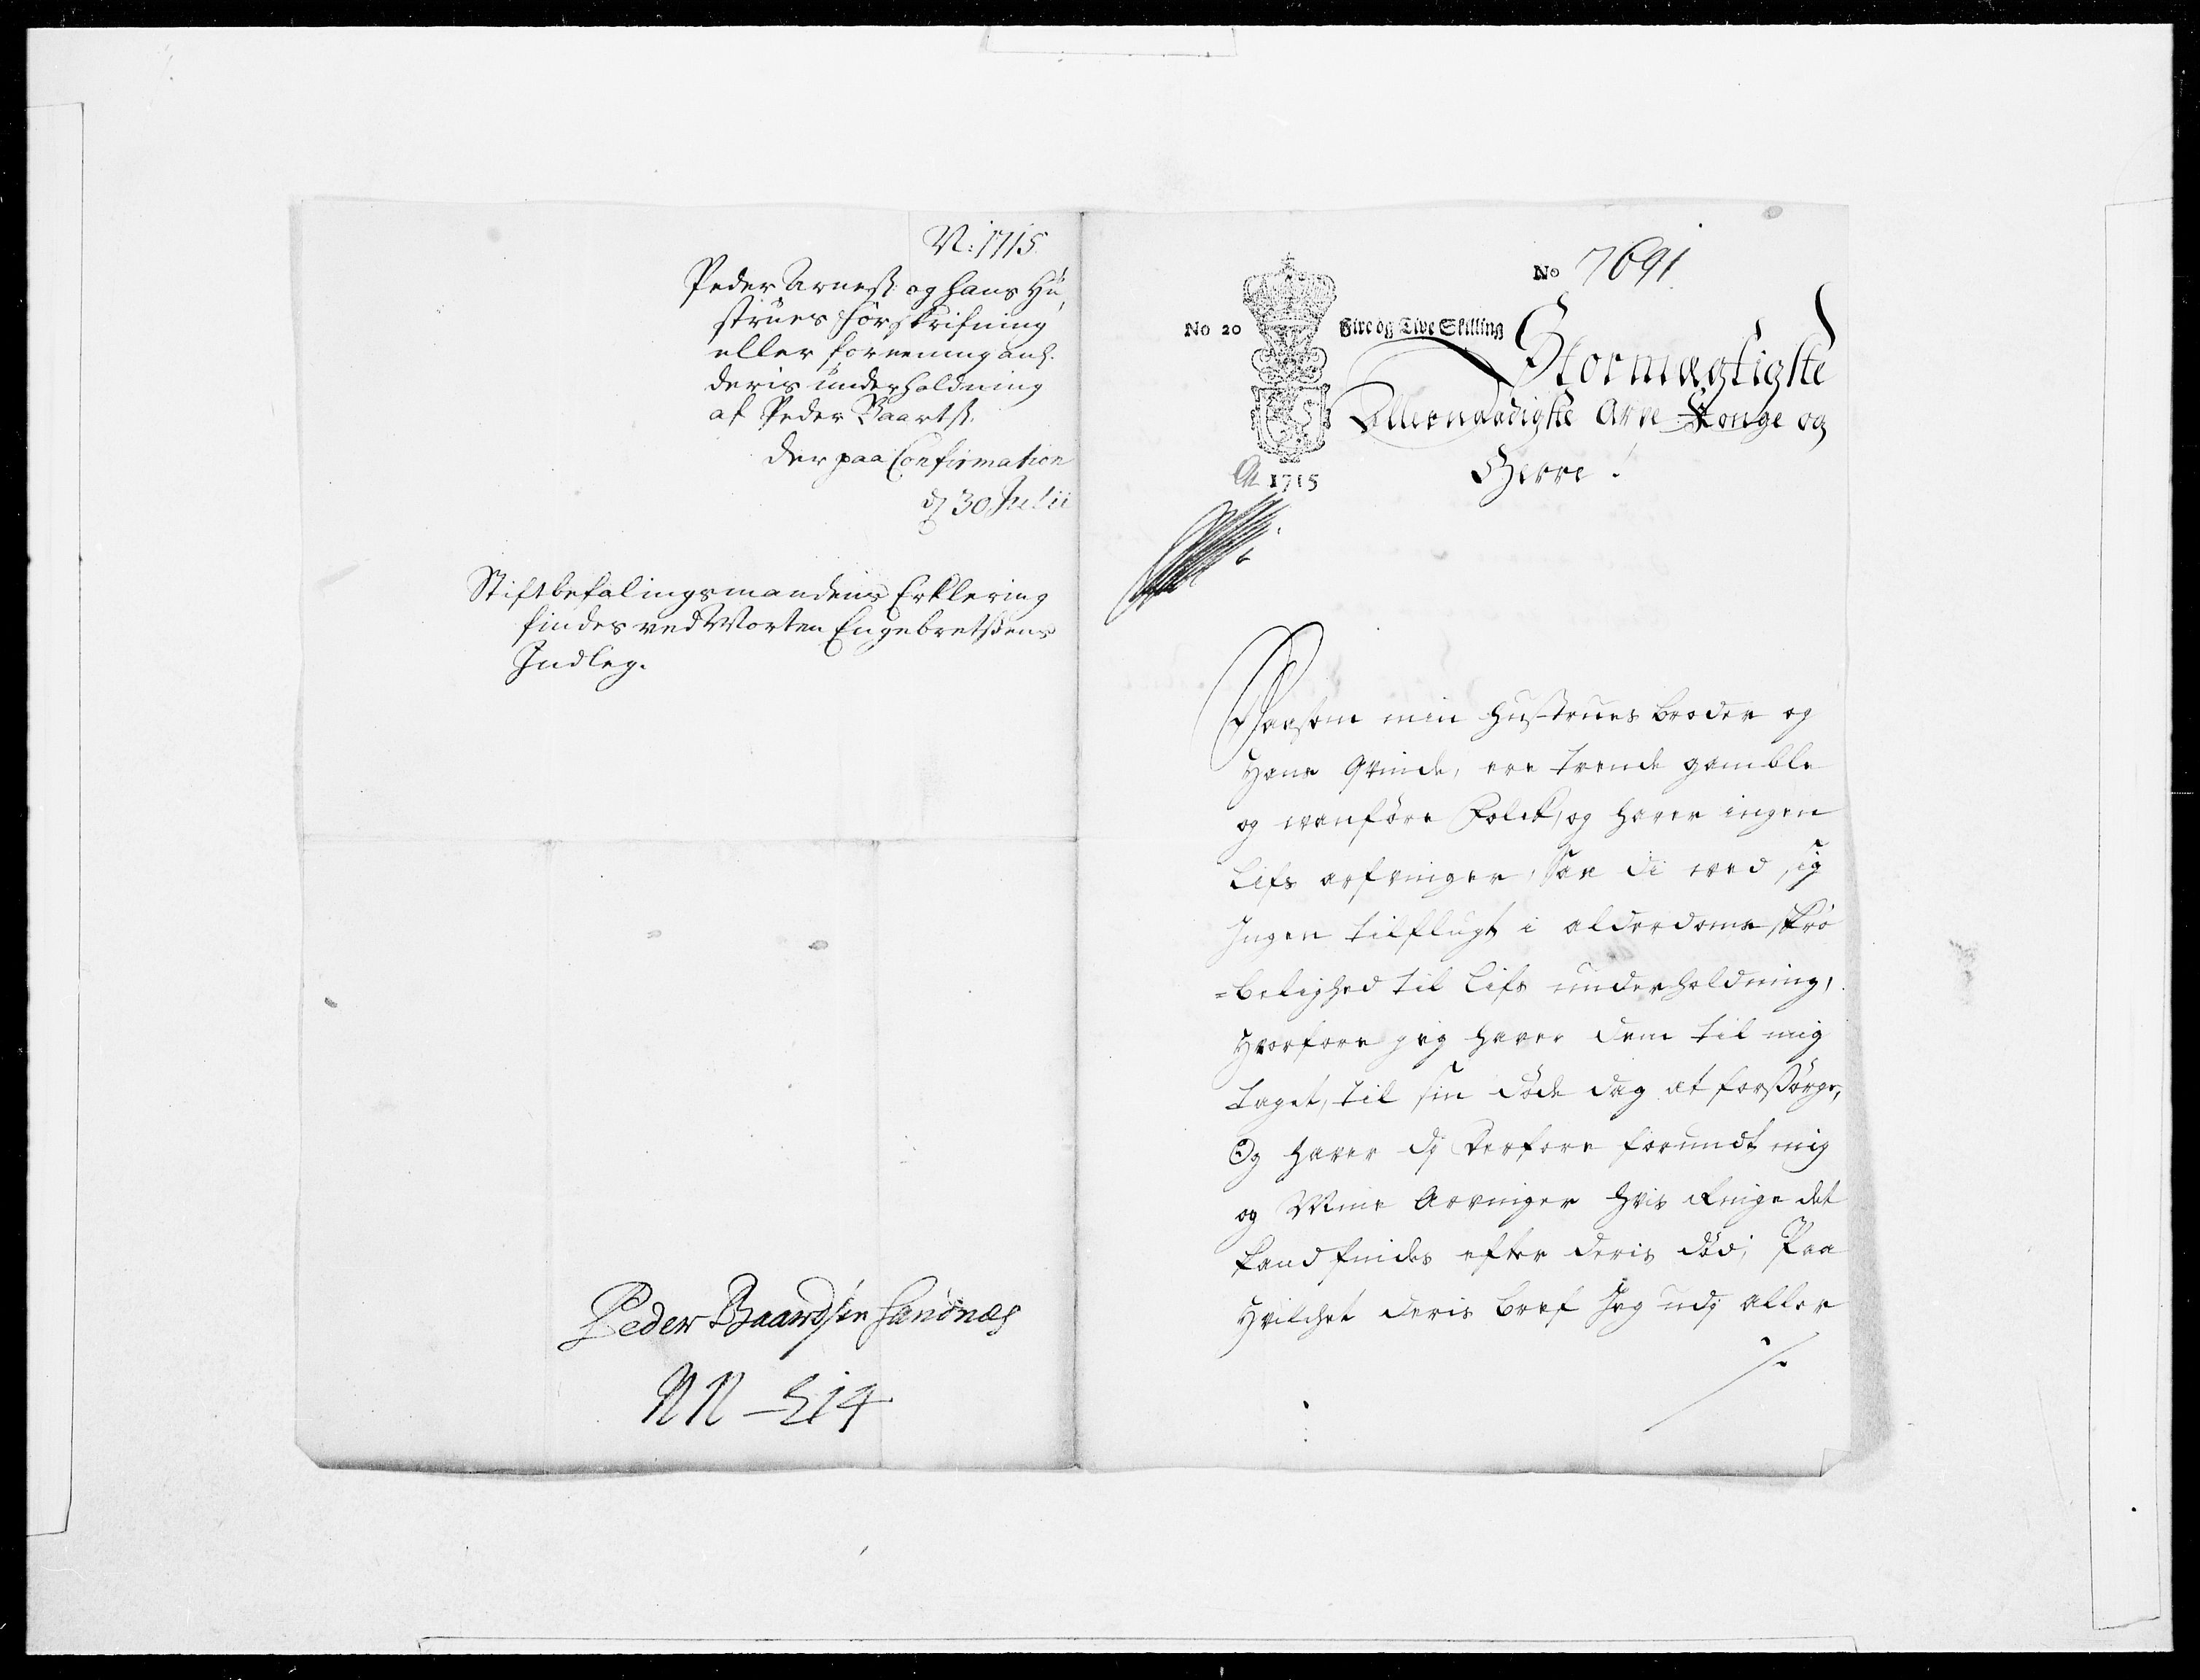 N: 1715
Peder Arnesß: og hans Hu,
strues forskrifning
eller foreening anl.
deris underholdning
af Peder Baartsß.
der paa Confirmation
dj 30 Julii
Stiftbefalingsmandens Erklering
findes ved Morten Engebretßens
Indleg.
Peder Baardsen Sandnæs
NN - 214
No 7691
No 20
Fire og Tive Skilling
Stormægtigste
Allernaadigste Arve Konge og
Herre!
1715
Saasom min Hustrues broder og
Hans Qvinde, ere trende gamble
og vanföre Folck, og haver ingen
Lifs arfvinger, Saa di veed sig
Ingen tilflugt i alderdoms skrö
=belighed til Lifs underholdning,
Hvorfore jeg haver dem til mig
taget, til sin döde dag at forsörge,
Og haver dj derfore forundt mig
og Mine Arvinger hvis Ringe det
kand findes efter deris död; Paa
Hvilchet deris bref Jeg udj aller